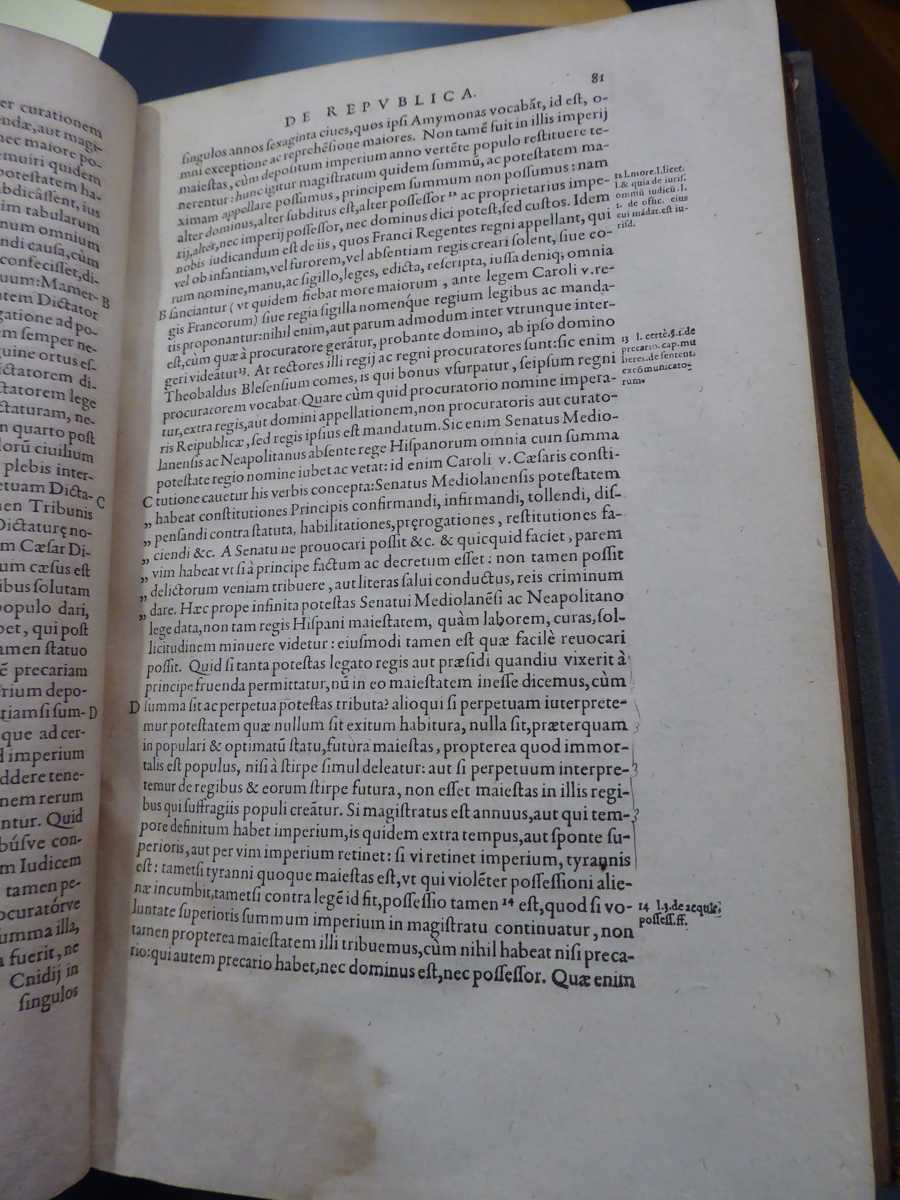 er curationem
endæ, aut magi-
nec maiore po-
muiri quidem
potestatem ha-
abdicâssent, ius
im tabularum
num omnium
ndi causa, cùm
confecisset, di-
uum: Mamer-
tem Dictator
gatione ad po-
em semper ne-
quine ortus es-
ctatorem di-
ctatorem lege
ctaturam, ne-
n quarto post
lorū ciuilium
plebis inter-
etuam Dicta-
nen Tribunis
Dictaturę no-
m Cæsar Di-
um cæsus est
ibus solutam
populo dari,
bet, qui post
amen statuo
ē precariam
rium depo-
tiamsi sum-
que ad cer-
d imperium
ddere tene-
nem rerum
ntur. Quid
búsve con-
m Iudicem
tamen pe-
ocuratórve
umma illa,
a fuerit, ne
Cnidij in
singulos
B
C
D
DE REPVBLICA. 81
singulos annos sexaginta ciues, quos ipsi Amymonas vocabāt, id est, o-
mni exceptione ac reprehēsione maiores. Non tamē fuit in illis imperij
maiestas, cùm depositum imperium anno vertēte populo restituere te-
nerentur: hunc igitur magistratum quidem summū, ac potestatem ma-
ximam appellare possumus, principem summum non possumus: nam
alter dominus, alter subditus est, alter possessor 12 ac proprietarius impe-
rij, alter, nec imperij possessor, nec dominus dici potest, sed custos. Idem
nobis iudicandum est de iis, quos Franci Regentes regni appellant, qui
vel ob infantiam, vel furorem, vel absentiam regis creari solent, siue eo-
rum nomine, manu, ac sigillo, leges, edicta, rescripta, iussa deniq; omnia
B sanciantur (vt quidem fiebat more maiorum, ante legem Caroli v. re-
gis Francorum) siue regia sigilla nomenque regium legibus ac manda-
tis proponantur: nihil enim, aut parum admodum inter vtrunque inter-
est, cùm quæ à procuratore gerātur, probante domino, ab ipso domino
geri videātur 13. At rectores illi regij ac regni procuratores sunt: sic enim
Theobaldus Blesensium comes, is qui bonus vsurpatur, seipsum regni
procuratorem vocabat. Quare cùm quid procuratorio nomine impera-
tur, extra regis, aut domini appellationem, non procuratoris aut curato-
ris Reipublicæ, sed regis ipsius est mandatum. Sic enim Senatus Medio-
lanensis ac Neapolitanus absente rege Hispanorum omnia cum summa
potestate regio nomine iubet ac vetat: id enim Caroli v. Cæsaris consti-
C tutione cauetur his verbis concepta: Senatus Mediolanensis potestatem
„ habeat constitutiones Principis confirmandi, infirmandi, tollendi, dis-
„ pensandi contra statuta, habilitationes, pręrogationes, restitutiones fa-
„ ciendi &c. A Senatu ne prouocari possit &c. & quicquid faciet, parem
„ vim habeat vt si à principe factum ac decretum esset: non tamen possit
„ delictorum veniam tribuere, aut literas salui conductus, reis criminum
„ dare. Hæc prope infinita potestas Senatui Mediolanēsi ac Neapolitano
lege data, non tam regis Hispani maiestatem, quàm laborem, curas, sol-
licitudinem minuere videtur: eiusmodi tamen est quæ facilè reuocari
possit. Quid si tanta potestas legato regis aut præsidi quandiu vixerit à
principe fruenda permittatur, nū in eo maiestatem inesse dicemus, cùm
D summa sit ac perpetua potestas tributa? alioqui si perpetuam iuterprete-
mur potestatem quæ nullum sit exitum habitura, nulla sit, præterquam
in populari & optimatū statu, futura maiestas, propterea quod immor-
talis est populus, nisi à stirpe simul deleatur: aut si perpetuum interpre-
temur de regibus & eorum stirpe futura, non esset maiestas in illis regi-
bus qui suffragiis populi creātur. Si magistratus est annuus, aut qui tem-
pore definitum habet imperium, is quidem extra tempus, aut sponte su-
perioris, aut per vim imperium retinet: si vi retinet imperium, tyrannis
est: tametsi tyranni quoque maiestas est, vt qui violēter possessioni alie-
næ incumbit, tametsi contra legē id fit, possessio tamen 14 est, quod si vo-
luntate superioris summum imperium in magistratu continuatur, non
tamen propterea maiestatem illi tribuemus, cùm nihil habeat nisi preca-
rio: qui autem precario habet, nec dominus est, nec possessor. Quæ enim
12 l. more. l. licet.
l. & quia de iuris.
omniū iudicū. l.
1. de offic. eius
cui mādat. est iu-
risd.
13 l. certè. §. i. de
precario. cap. mu
lieres. de sentent.
excōmunicato-
rum.
14 l. 3. de acquir.
possess. ff.